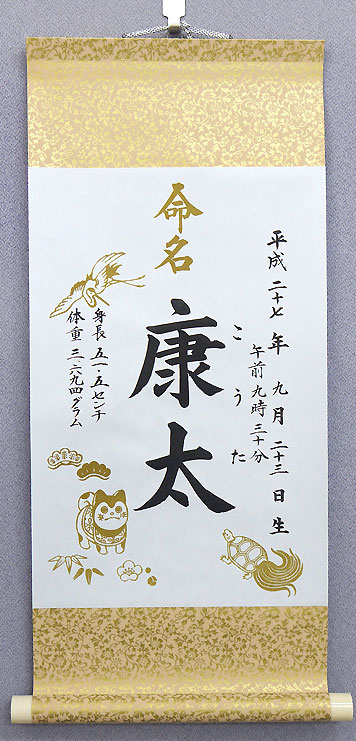 平成二十七年九月二十三日生
午前九時三十分
命名
康太
こうた
身長 五一・五センチ
体重 三、六九四グラム